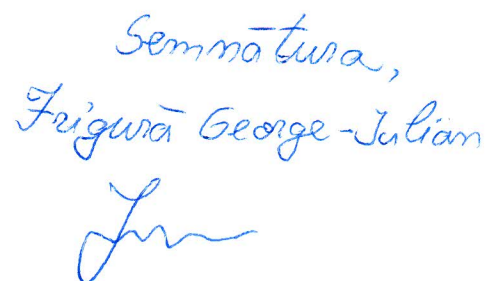 Semnătura,
Frigură George-Julian